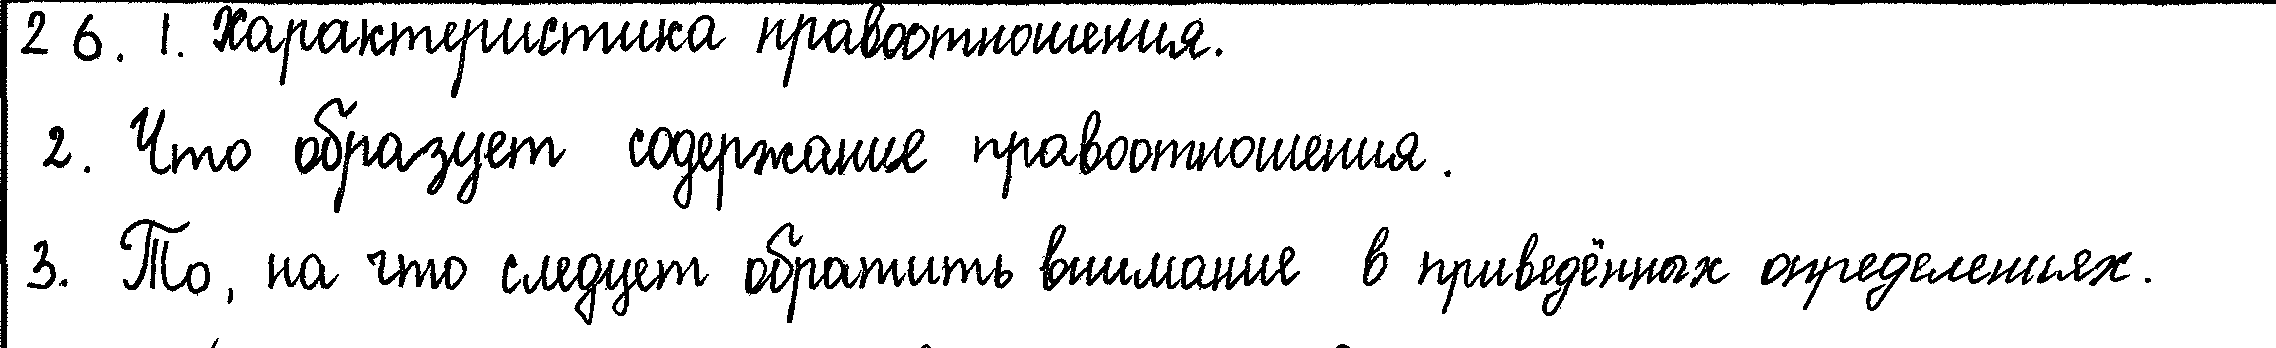 26. 1. Характеристика правоотношения.
2. Что образует содержание правоотношения.
3. То, на что следует обратить внимание в приведённых определениях.